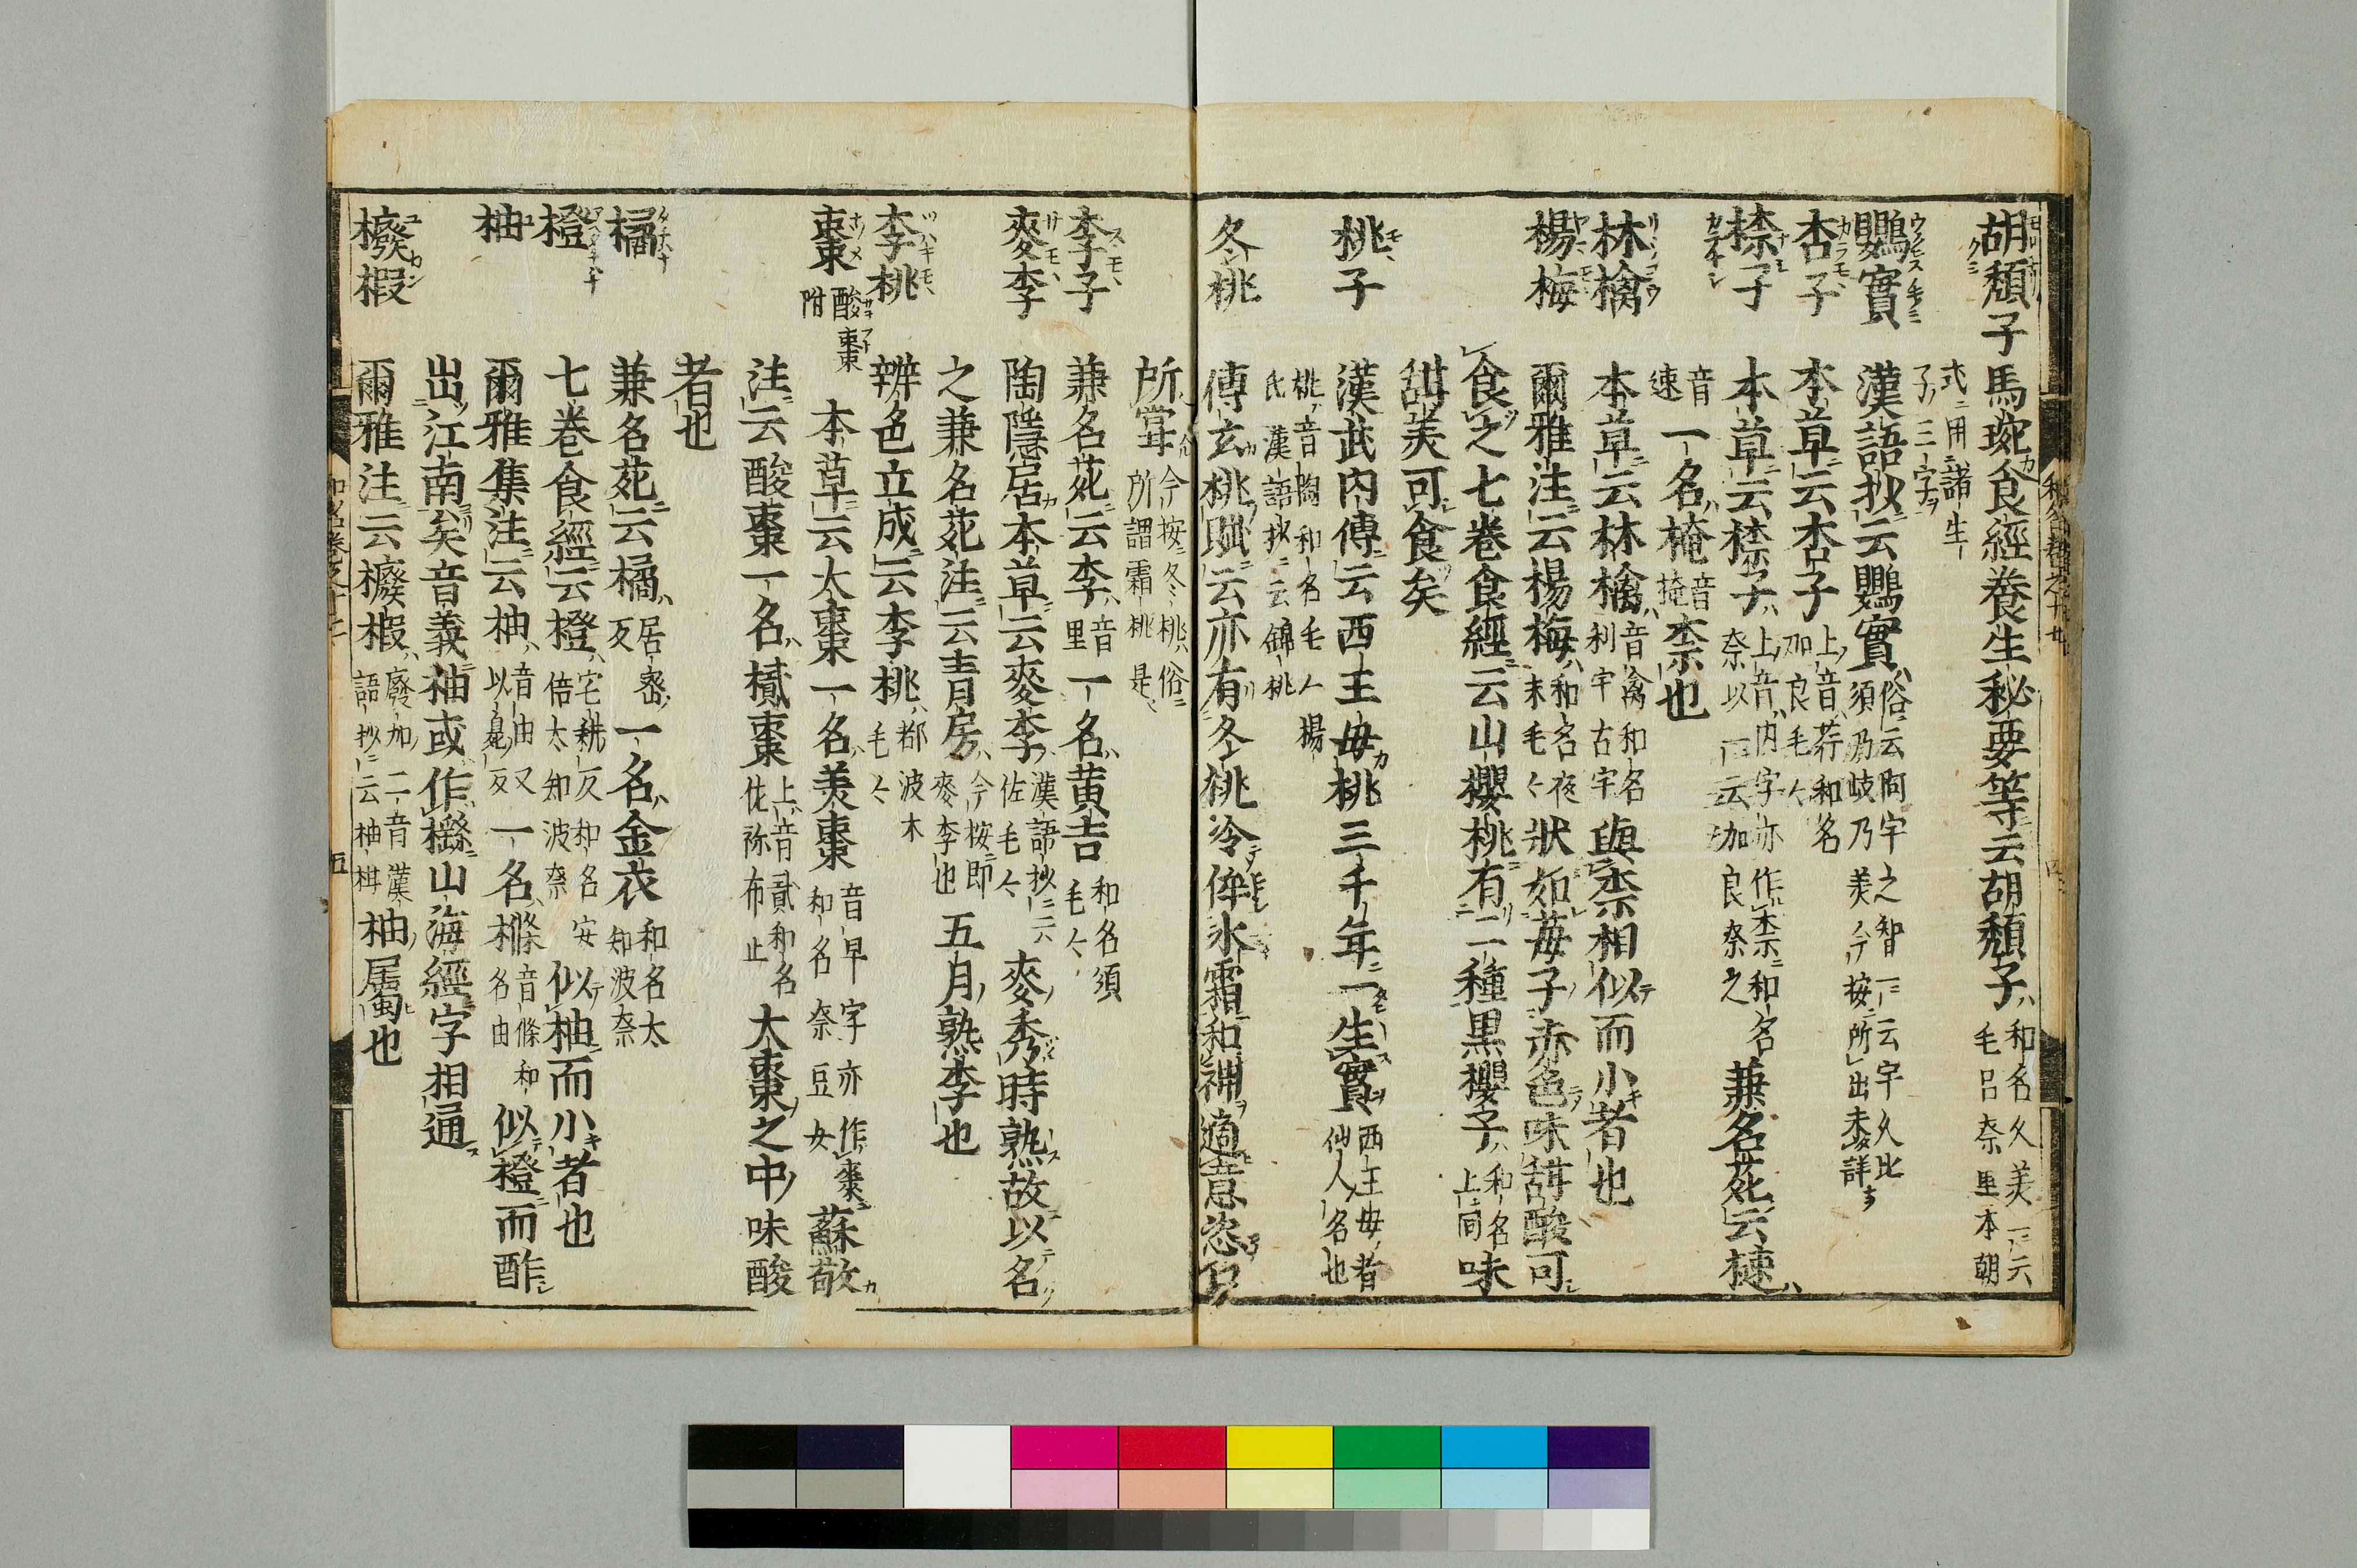 胡頽子 馬琬食經養生秘要等云胡頽子 和名久美一云毛呂奈里本朝
式用諸生子三字
鸎實 漢語抄云鸎實 俗云阿宇之智一云宇久比須乃岐乃美今按所出未詳
杏子 本草云杏子 上音荇和名加良毛々
㮈子 本草云㮈子 上音内字亦作柰和名奈以一云加良奈之 兼名苑云楝
音速 一名㭺 音掩 柰也
林檎 本草云林檎 音禽和名利宇古宇 與柰相似而小者也
楊梅 爾雅注云楊梅 和名夜末毛々 狀如莓子赤色味甜酸可
食之七巻食經云山櫻桃有二種黒櫻子 和名上同 味
甜美可食矣
桃子 漢武内傳云西王母桃三千年一生實 西王母者仙人名也
桃音陶和名毛々楊氏漢語抄云錦桃
冬桃 傅玄桃賦云亦有冬桃冷侔氷霜和神適意恣口
所嘗 今按冬桃俗所謂霜桃是
李子 兼名苑云李 音里 一名黄吉 和名須毛々
麥李 陶隠居本草云麥李 漢語抄云佐毛々 麥秀時熟故以名
之兼名苑注云青房 今按即麥李也 五月熟李也
李桃 辨色立成云李桃 都波木毛々
棗 酸棗附 本草云大棗一名美棗 音早字亦作𬃷和名奈豆女 蘇敬
注云酸棗一名樲棗 上音貳和名佐祢布止 大棗之中味酸
者也
橘 兼名苑云橘 居密反 一名金衣 和名太知波奈
橙 七巻食經云橙 宅耕反和名安倍太知波奈 似柚而小者也
柚 爾雅集注云柚 音由又以臭反 一名樤 音條和名由 似橙而酢
出江南矣音義柚或作櫾山海經字相通
櫠椵 爾雅注云櫠椵 廢加二音漢語抄云柚柑 柚屬也
五